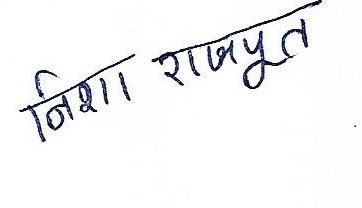 निशा राजपूत